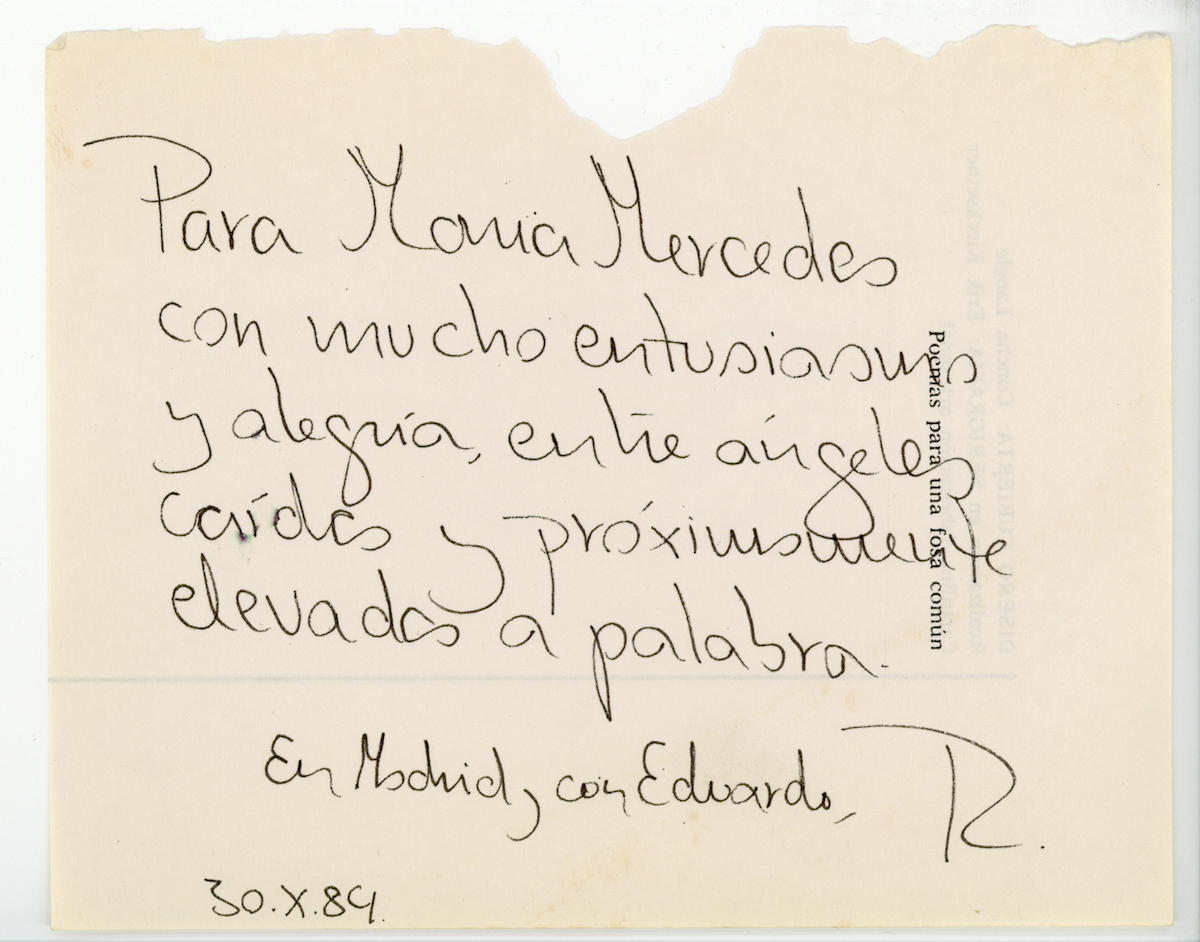 Para María Mercedes
con mucho entusiasmo
y alegría, entre ángeles
caídos y próximamente
elevados a palabra.
En Madrid, con Eduardo,
R.
30.X.84.
Poemas para una fosa común
DISEÑO CUBIERTA: Concha Langle
Erik Kirchsether